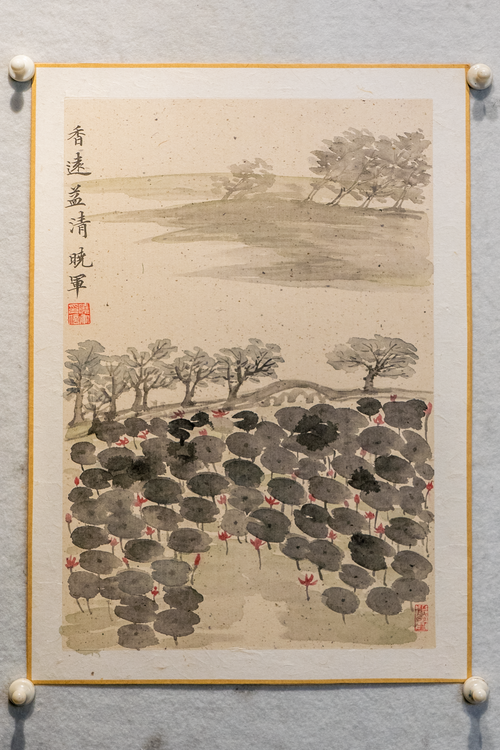 香遠益清 曉軍